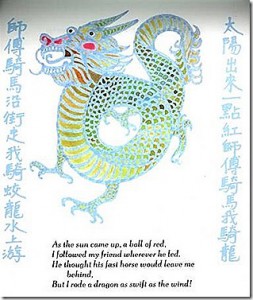 太陽出來一點紅師傅騎馬我騎龍
師傅騎馬沿街走我騎蛟龍水上游
As the sun came up, a ball of red,
I followed my friend wherever he led.
He thought his fast horse would leave me
behind,
But I rode a dragon as swift as the wind!